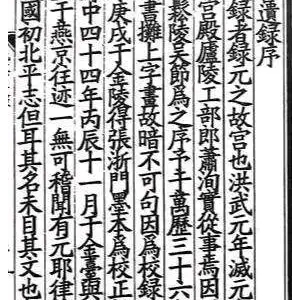 遺録序
録者録元之故宮也洪武元年滅元
宮殿廬陵工部郎蕭洵實從事焉因
鬆陵吳節為之序予于萬歷三十六
書攤上字畫故暗不可句因為校録
庚戌于金陵得張浙門墨本為校正
中四十四年丙辰十一月于金臺與
于燕京往迹一無可稽閒有元耶律
國初北平志但耳其名未目其文也